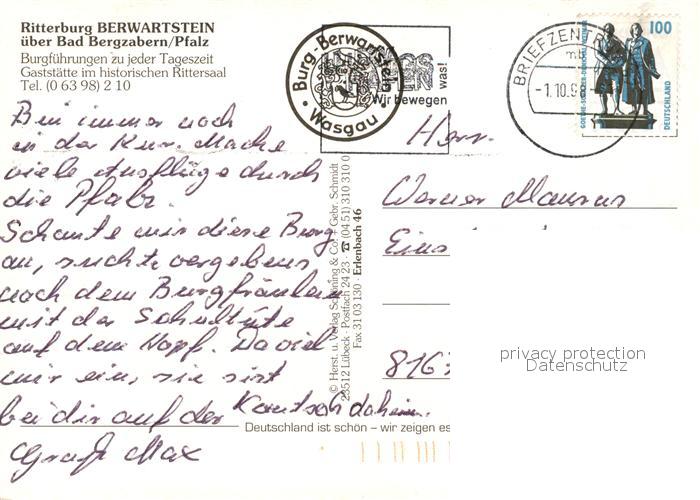 Ritterburg BERWARTSTEIN
über Bad Bergzabern/Pfalz
Burgführungen zu jeder Tageszeit
Gaststätte im historischen Rittersaal
Tel. (0 63 98) 2 10
Burg-Berwartstein
Wasgau
was!
Wir bewegen
BRIEFZENTR
-1.10.9
100
GOETHE-SCHILLER-DENKMAL WEIMAR
DEUTSCHLAND
Bin immer noch
in der Kur. Mache
viele Ausflüge durch
die Pfalz.
Schaute mir diese Burg
an, suchte vergebens
nach dem Burgfräulein
mit der Schultüte
auf dem Kopf. Da viel
mir ein, sie sist
bei dir auf der Kautsch daheim.
Gruß Max
Herr.
Werner
816
© Herst. u. Verlag Schöning & Co + Gebr. Schmidt
23512 Lübeck · Postfach 24 23 · ☎ (04 51) 310 310 0
Fax 31 03 130 · Erlenbach 46
Deutschland ist schön – wir zeigen es
privacy protection
Datenschutz